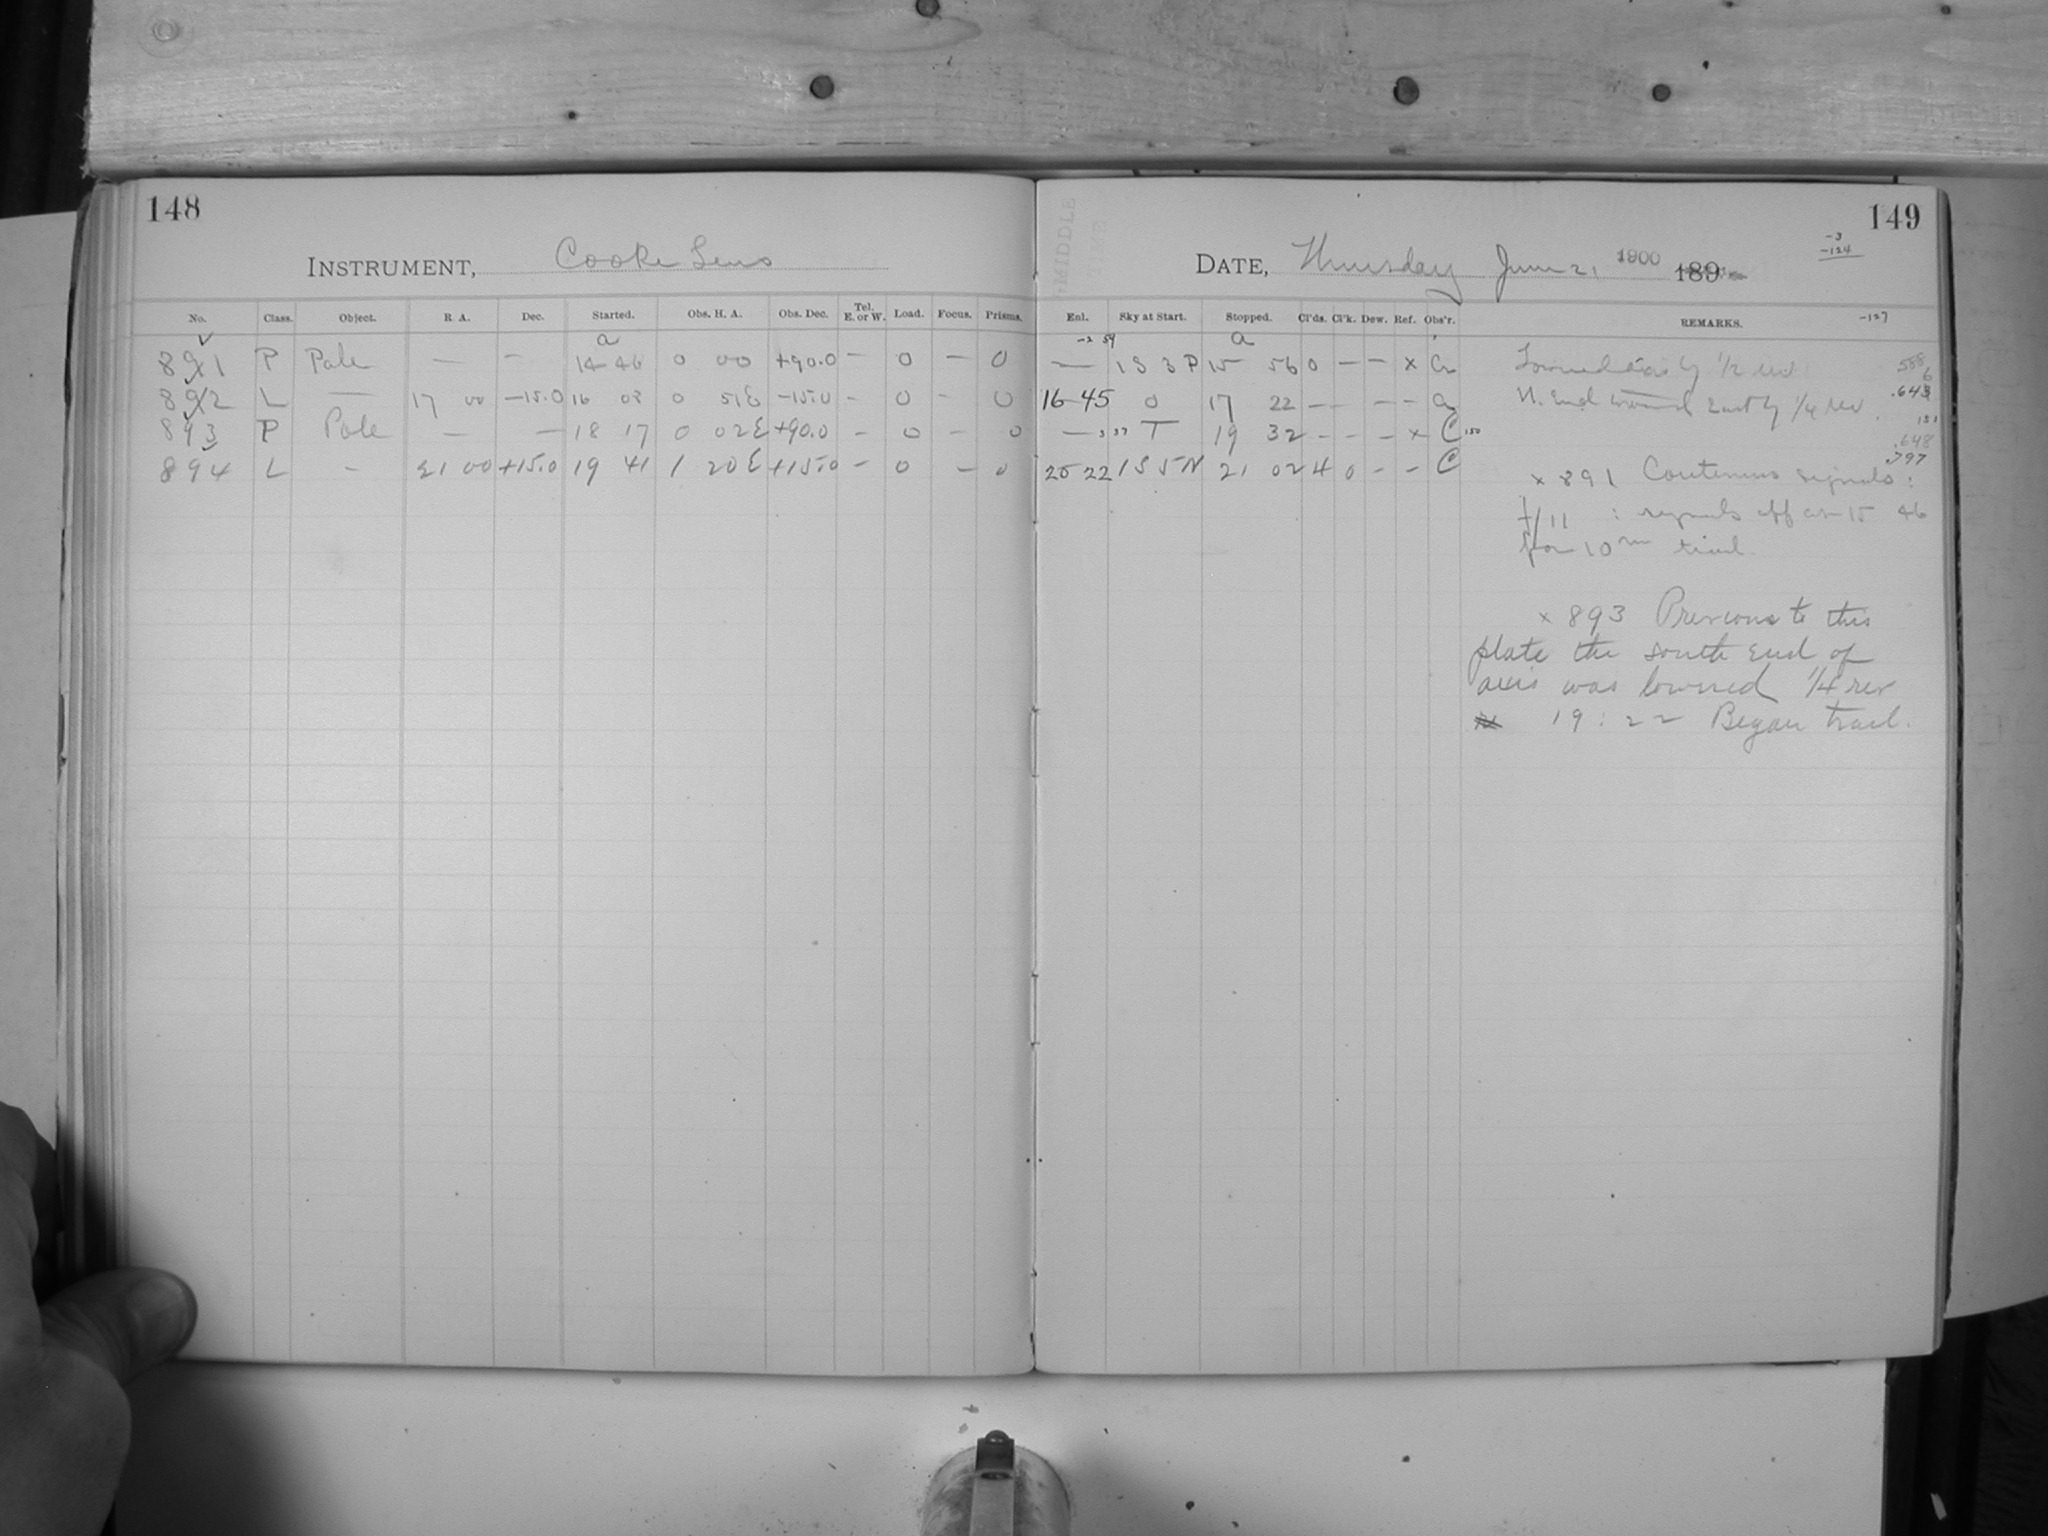 148
INSTRUMENT, Cooke Lens
No. Class. Object. R. A. Dec. Started. Obs. H. A. Obs. Dec. Tel. E. or W. Load. Focus. Prisms.
a
891 P Pole — — 14 46 0 00 +90.0 — 0 — 0
892 L — 17 00 -15.0 16 03 0 51E -15.0 - 0 - 0
893 P Pole — — 18 17 0 02E +90.0 - 0 - 0
894 L - 21 00 +15.0 19 41 1 20E +15.0 - 0 - 0
149
MIDDLE TIME
-3
-124
DATE, Thursday June 21 1900 189
Enl. Sky at Start. Stopped. Cl'ds. Cl'k. Dew. Ref. Obs'r. REMARKS. -127
-2 59 a
— 1 S 3 P 15 56 0 — — x by 1/2 rev. 588
6
16 45 0 17 22 — — - a N. End moved East by 1/4 rev .643
— 3 37 T 19 32 - - - x C 150
151
.648
20 22 1 S 5 N 21 02 4 0 - - C .797
x 891 Continuous signals:
: signals off at 15 46
for 10 m trail.
x 893 Previous to this
plate the south end of
axis was lowered 1/4 rev
19 : 22 Began trail.